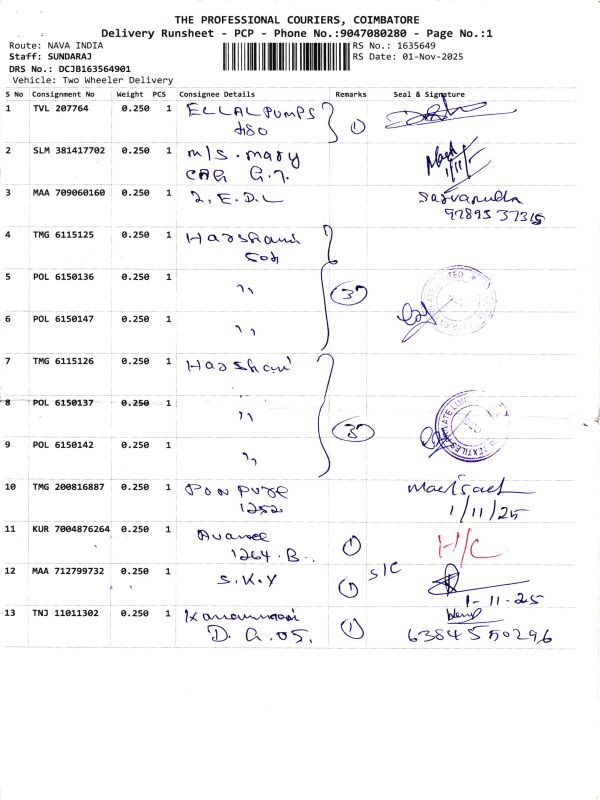 THE PROFESSIONAL COURIERS, COIMBATORE
Delivery Runsheet - PCP - Phone No.:9047080280 - Page No.:1
Route: NAVA INDIA RS No.: 1635649
Staff: SUNDARAJ RS Date: 01-Nov-2025
DRS No.: DCJB163564901
Vehicle: Two Wheeler Delivery
S No Consignment No Weight PCS Consignee Details Remarks Seal & Signature
1 TVL 207764 0.250 1 ELLAL PUMPS
480 1
2 SLM 381417702 0.250 1 M/S. Mary
G.T. 1/11/
3 MAA 709060160 0.250 1 2, E.D.L
4 TMG 6115125 0.250 1 Harshani
5 POL 6150136 0.250 1 ,, 3
6 POL 6150147 0.250 1 ,,
7 TMG 6115126 0.250 1 Harshani
8 POL 6150137 0.250 1 ,,
9 POL 6150142 0.250 1 ,, 3
10 TMG 200816887 0.250 1 PON PURE
1252 1/11/25
11 KUR 7004876264 0.250 1
1264. B 1 H/C
12 MAA 712799732 0.250 1 S.K.Y 1 S/C
1-11-25
13 TNJ 11011302 0.250 1
D. G. 05. 1 6384550296